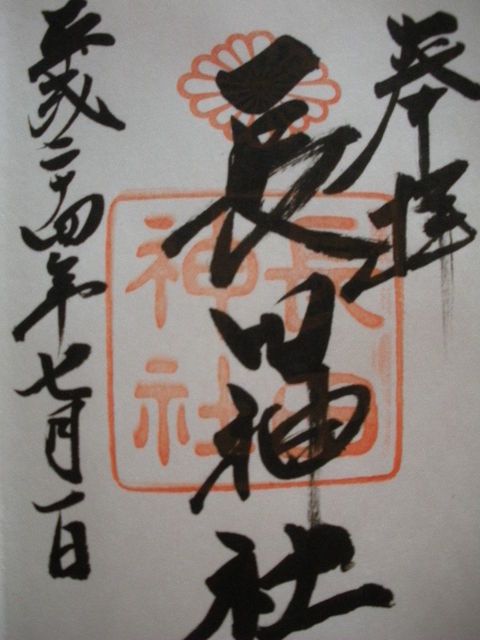 奉拝
長田神社
長田
神社
平成二十四年七月一日